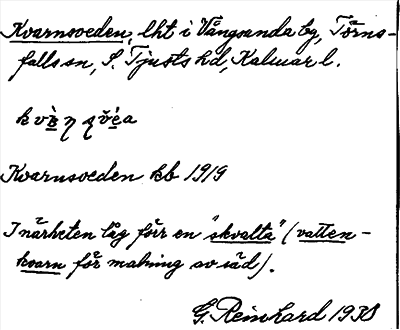 Kvarnsveden, lht i Vångsanda bg, Törns-
falls sn, S. Tjusts hd, Kalmar l.
Kvarnsveden kb 1919
I närheten låg förr en "skvalta" (vatten-
kvarn för malning av säd).
G. Reinhard 1938